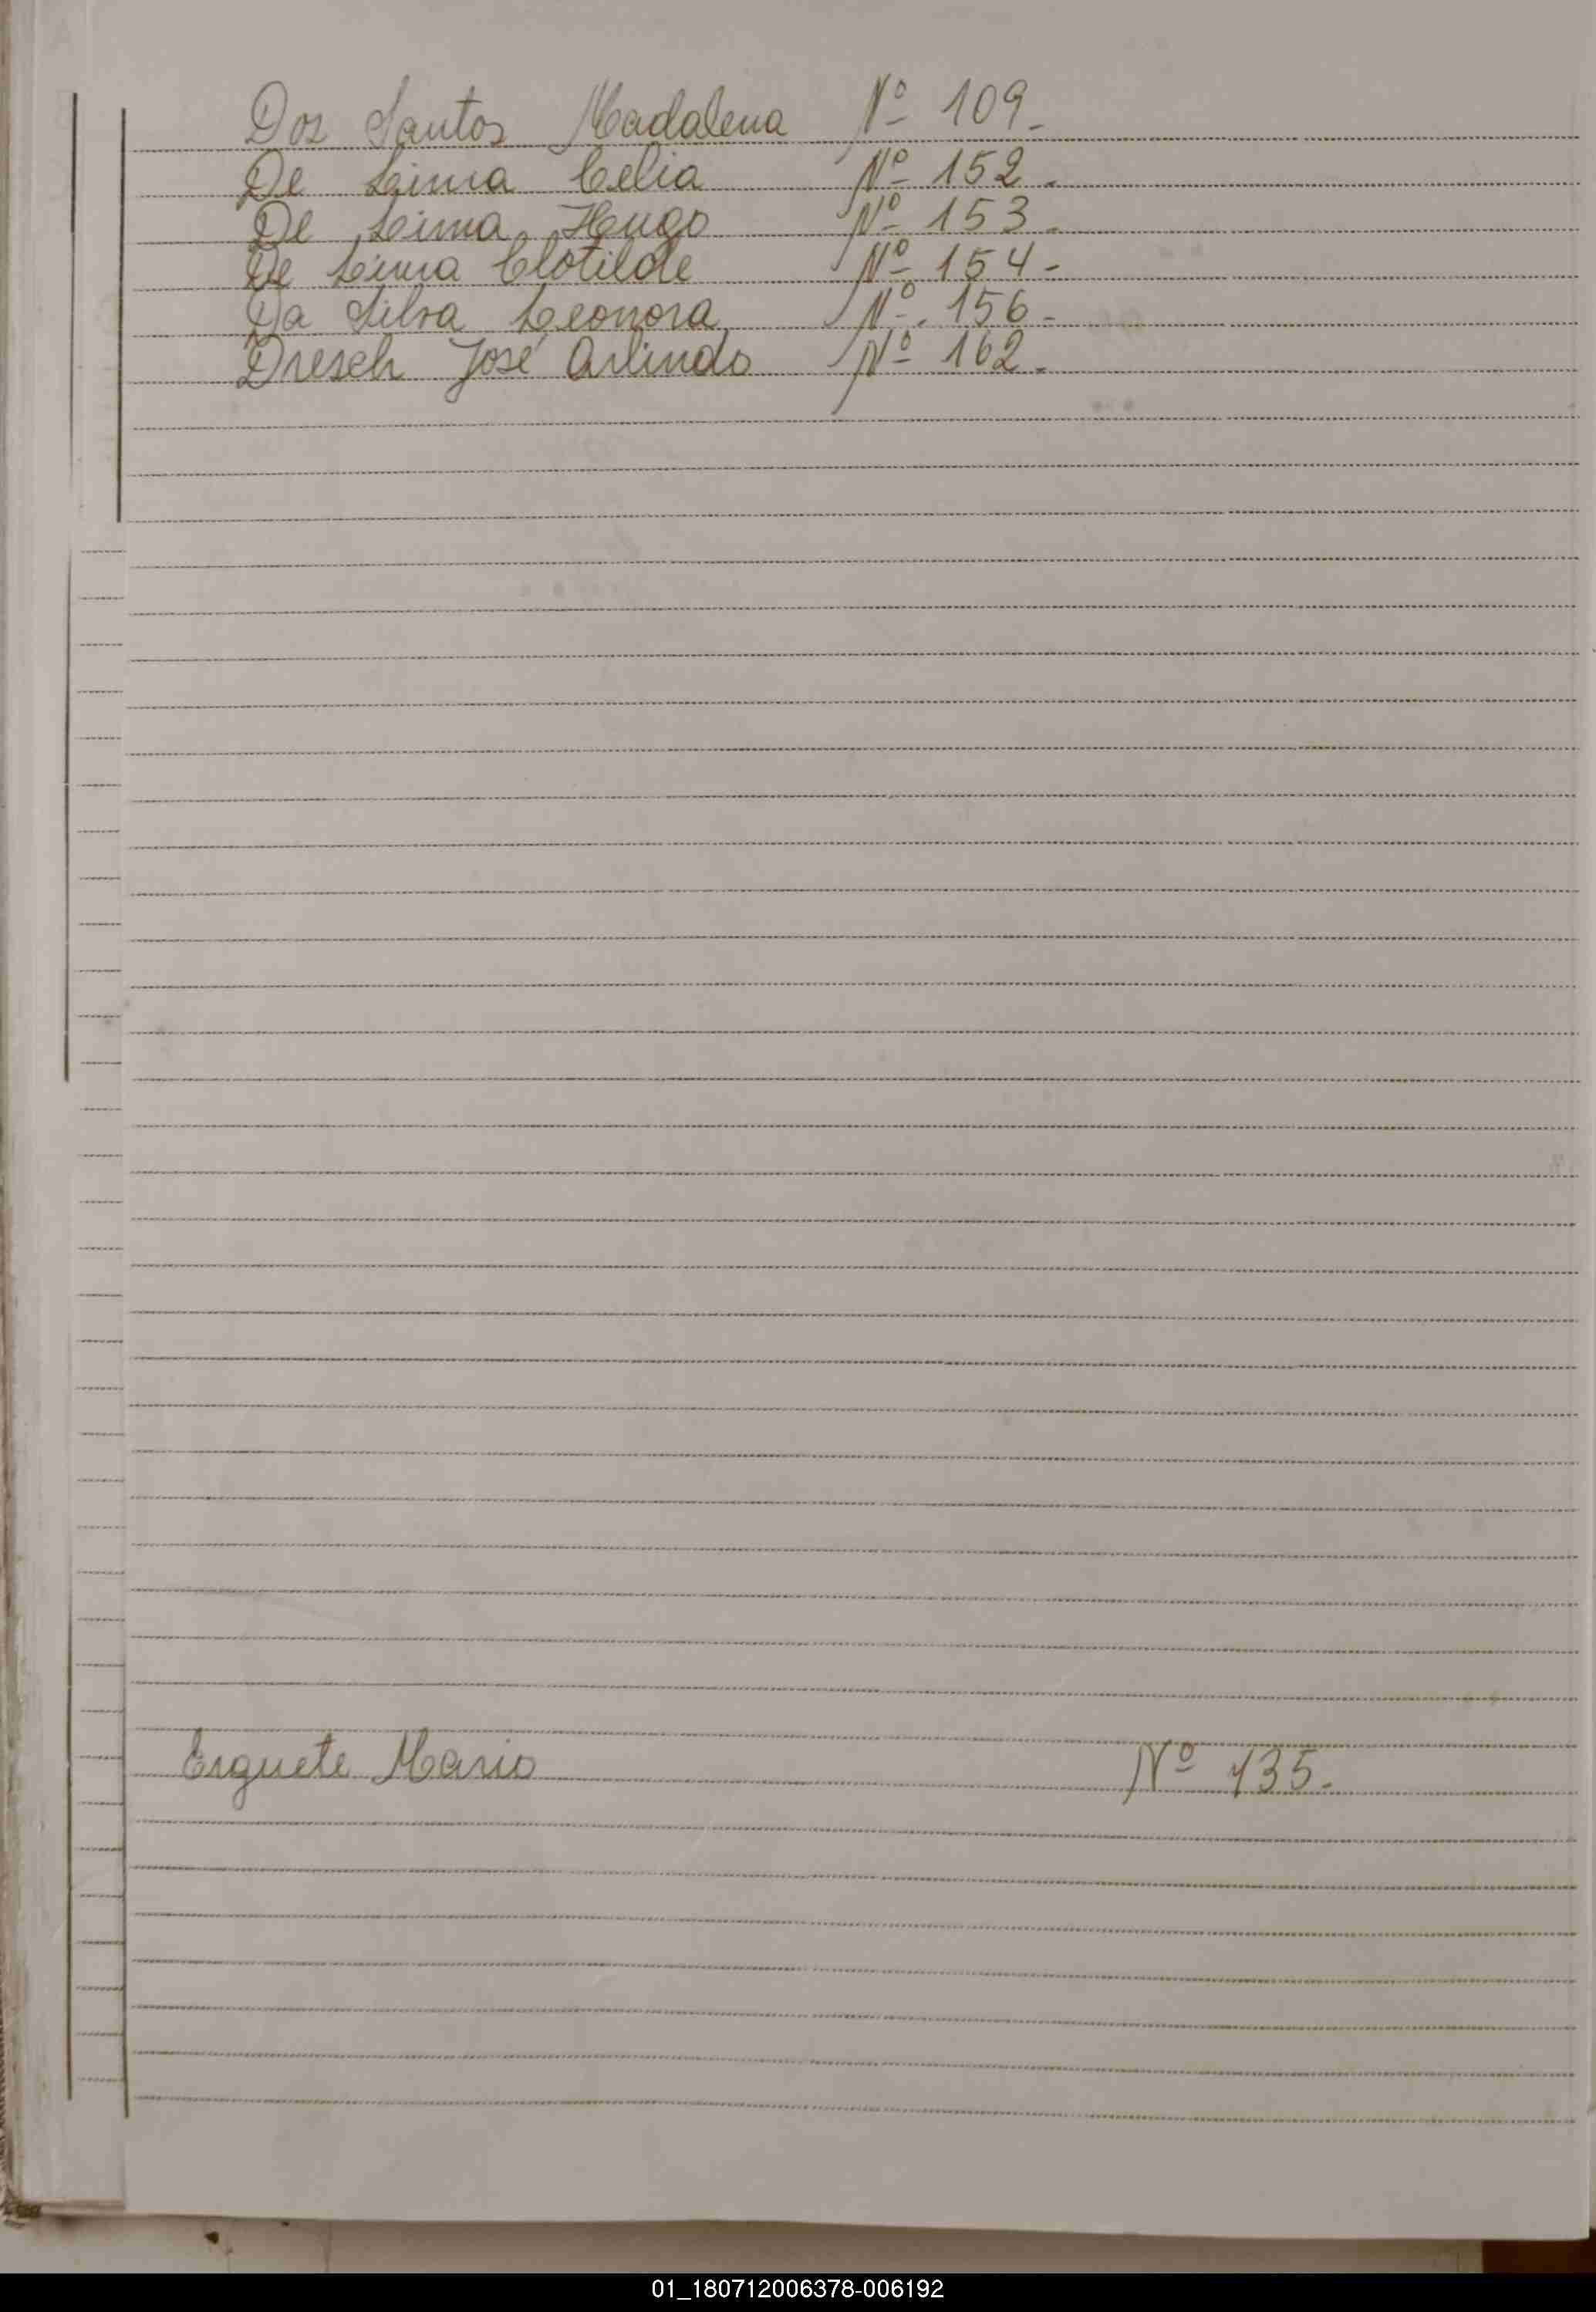 Dos Santos Madalena Nº 109.
De Lima Celia Nº 152.
De Lima Hugo Nº 153.
De Lima Clotilde Nº 154-
Da Silva Leonora Nº. 156-
Dresch José Arlindo Nº 162.
Erguete Mario Nº 135.
01_180712006378-006192